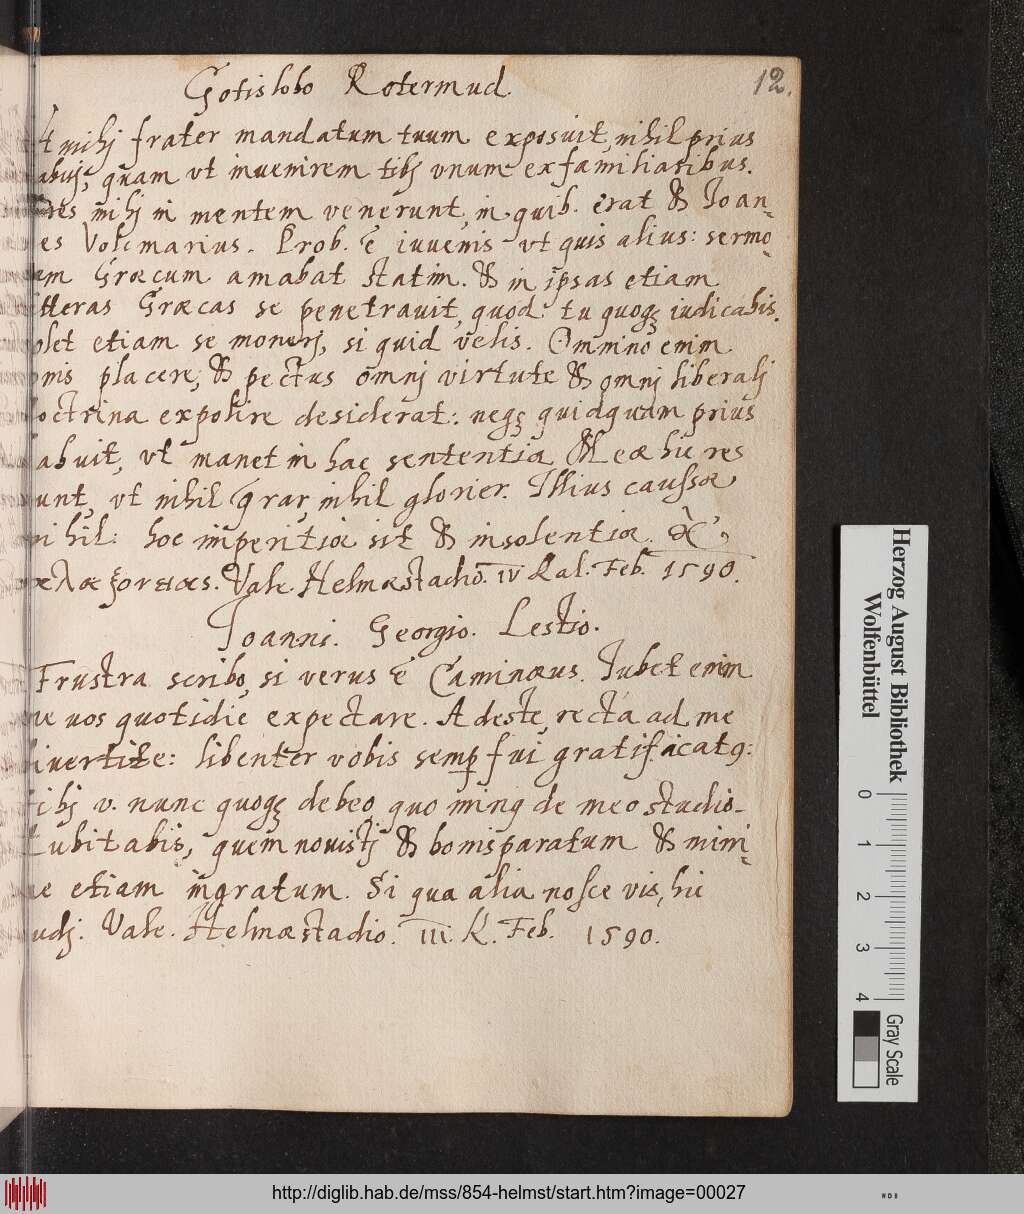 Gotislobo Rotermud.
12.
mihj frater mandatum tuum exposuit, nihil prius
abuj, quam vt invenirem tibj vnum ex familiaribus.
res mihj in mentem venerunt, in quib. erat & Joan-
es Volcmarius. Prob. ē iuvenis vt quis alius: sermo-
em Græcum amabat statim. & in ipsas etiam
tteras Græcas se penetravit, quod tu quoqȝ iudicabis.
olet etiam se monerj, si quid velis. Omnino enim
onis placere, & pectus omnj virtute & omnj liberalj
octrina expolire desiderat: neqȝ quidquam prius
abuit, vt manet in hac sententia. Meæ hic res
unt, vt nihil, nihil glorier. Illius caussa
ihil: hoc imperitiæ sit & insolentiæ.
Vale. Helmæstadio. IV Kal. Feb. 1590.
Joanni. Georgio. Lestio.
Frustra scribo, si verus ē Caminæus. Jubet enim
me vos quotidie expectare. Adeste, recta ad me
ivertite: libenter vobis semp fui gratificatꝯ:
ibj v. nunc quoqȝ debeo, quo minꝯ de meo studio
ubitabis, quem novistj & bonis paratum & mini-
e etiam ingratum. Si qua alia nosce vis, hic
udj. Vale. Helmæstadio. III. K. Feb. 1590.
Herzog August Bibliothek
Wolfenbüttel
0 1 2 3 4
Gray Scale
http://diglib.hab.de/mss/854-helmst/start.htm?image=00027